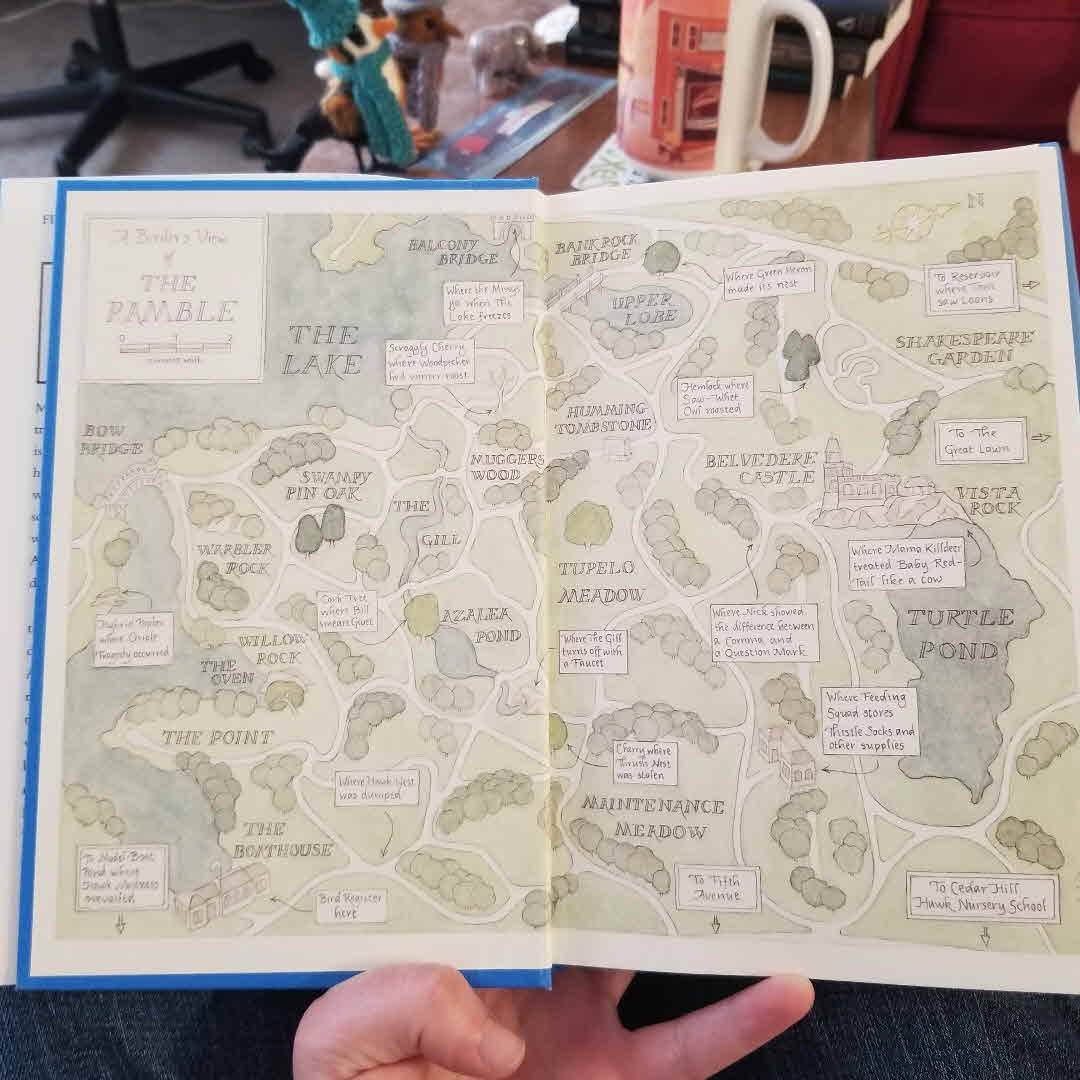 A Birder's View
of
THE
RAMBLE
0 1 2
minutes' walk
THE
LAKE
BALCONY
BRIDGE
Where the Mimus
go when the
Lake freezes
Scraggly Cherry
where Woodpecker
had winter roost
BOW
BRIDGE
SWAMPY
PIN OAK
MUGGERS
WOOD
THE
GILL
WARBLER
ROCK
Cork Tree
where Bill
smears Suet
AZALEA
POND
Hybrid Poplar
where Oriole
Tragedy occurred
WILLOW
ROCK
THE
OVEN
THE POINT
Where Hawk Nest
was dumped
THE
BOATHOUSE
To Model-Boat
Pond where
Hawk
Bird Register
here
BANK ROCK
BRIDGE
N
UPPER
LOBE
Where Green Heron
made its nest
To Reservoir
where Tom
saw Loons
SHAKESPEARE
GARDEN
Hemlock where
Saw-Whet
Owl roosted
HUMMING
TOMBSTONE
To The
Great Lawn
BELVEDERE
CASTLE
VISTA
ROCK
Where Mama Killdeer
treated Baby Red-
Tail like a cow
TUPELO
MEADOW
Where Nick showed
the difference between
a Comma and
a Question Mark
TURTLE
POND
Where The Gill
turns off with
a Faucet
Where Feeding
Squad stores
Thistle Socks and
other supplies
Cherry where
Thrush Nest
was stolen
MAINTENANCE
MEADOW
To Fifth
Avenue
To Cedar Hill
Hawk Nursery School